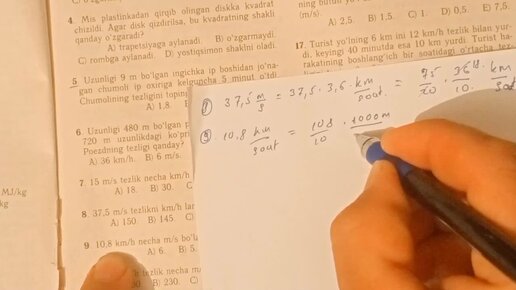 4. Mis plastinkadan qirqib olingan diskka kvadrat
chizildi. Agar disk qizdirilsa, bu kvadratning shakli
qanday o'zgaradi?
A) trapetsiyaga aylanadi. B) o'zgarmaydi.
C) rombga aylanadi. D) yostiqsimon shaklni oladi.
5. Uzunligi 9 m bo'lgan ingichka ip boshidan jo'na-
gan chumoli ip oxiriga kelguncha 5 minut o'tdi.
Chumolining tezligini topin
A) 1,8.
6. Uzunligi 480 m bo'lgan p
720 m uzunlikdagi ko'pr
Poezdning tezligi qanday?
A) 36 km/h. B) 6 m/s.
7. 15 m/s tezlik necha km/h
A) 18. B) 30. C
8. 37,5 m/s tezlikni km/h lar
A) 150. B) 145. C)
9. 10,8 km/h necha m/s bo'lu
A) 6. B) 5.
tezlik necha m/
B) 230. C)
MJ/kg
kg
(m/s).
A) 2,5. B) 1,5. C) 1. D) 0,5. E) 7,5.
17. Turist yo'lning 6 km ini 12 km/h tezlik bilan yur-
di, keyingi 40 minutda esa 10 km yurdi. Turist ha-
rakatining boshlang'ich bir soatidagi o'rtacha tez-
37,5 m/s = 37,5 · 3,6 · km/soat =
10.8 km/soat = 108/10 · 1000m